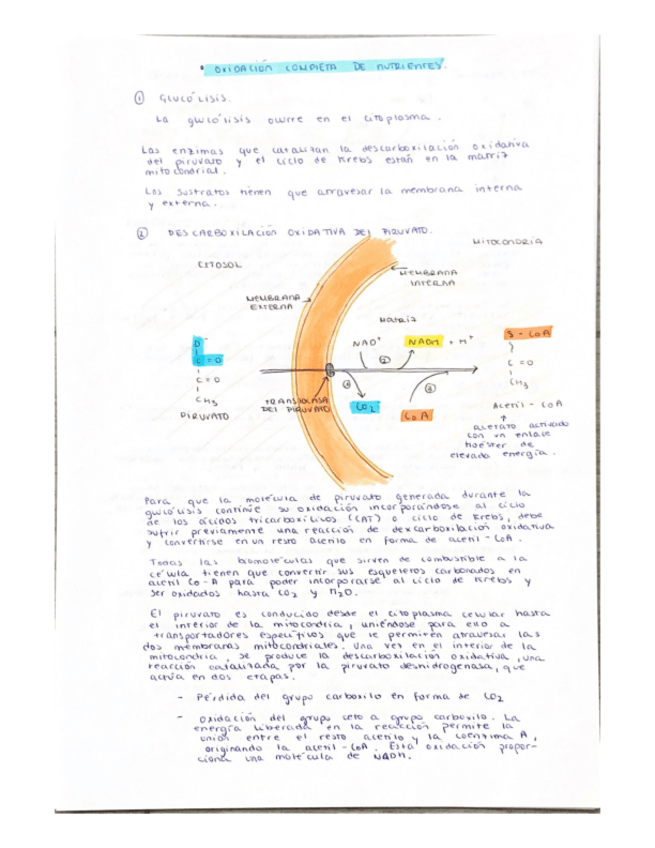 • OXIDACIÓN COMPLETA DE NUTRIENTES.
① GLUCÓLISIS.
La glucólisis ocurre en el citoplasma.
Las enzimas que catalizan la descarboxilación oxidativa
del piruvato y el ciclo de Krebs están en la matriz
mitocondrial.
Los sustratos tienen que atravesar la membrana interna
y externa.
② DESCARBOXILACIÓN OXIDATIVA DEL PIRUVATO.
MITOCONDRIA
CITOSOL
MEMBRANA
INTERNA
MEMBRANA
EXTERNA
Matriz
NAD⁺
NADH + H⁺
S - CoA
O⁻
C = O
C = O
CH₃
PIRUVATO
②
①
③
TRANSLOCASA
DEL PIRUVATO
CO₂
CoA
C = O
CH₃
Acetil - CoA
acetato activado
con un enlace
tioéster de
elevada energía.
Para que la molécula de piruvato generada durante la
glucólisis continúe su oxidación incorporándose al ciclo
de los ácidos tricarboxílicos (CAT) o ciclo de Krebs, debe
sufrir previamente una reacción de dexcarboxilación oxidativa
y convertirse en un resto acetilo en forma de acetil - CoA.
Todas las biomoléculas que sirven de combustible a la
célula tienen que convertir sus esqueletos carbonados en
acetil Co-A para poder incorporarse al ciclo de Krebs y
ser oxidados hasta CO₂ y H₂O.
El piruvato es conducido desde el citoplasma celular hasta
el interior de la mitocondria, uniéndose para ello a
transportadores específicos que le permiten atravesar las
dos membranas mitocondriales. Una vez en el interior de la
mitocondria, se produce la descarboxilación oxidativa, una
reacción catalizada por la piruvato deshidrogenasa, que
actúa en dos etapas.
- Pérdida del grupo carboxilo en forma de CO₂
- Oxidación del grupo ceto a grupo carboxilo. La
energía liberada en la reacción permite la
unión entre el resto acetilo y la coenzima A,
originando la acetil - CoA. Esta oxidación propor-
ciona una molécula de NADH.